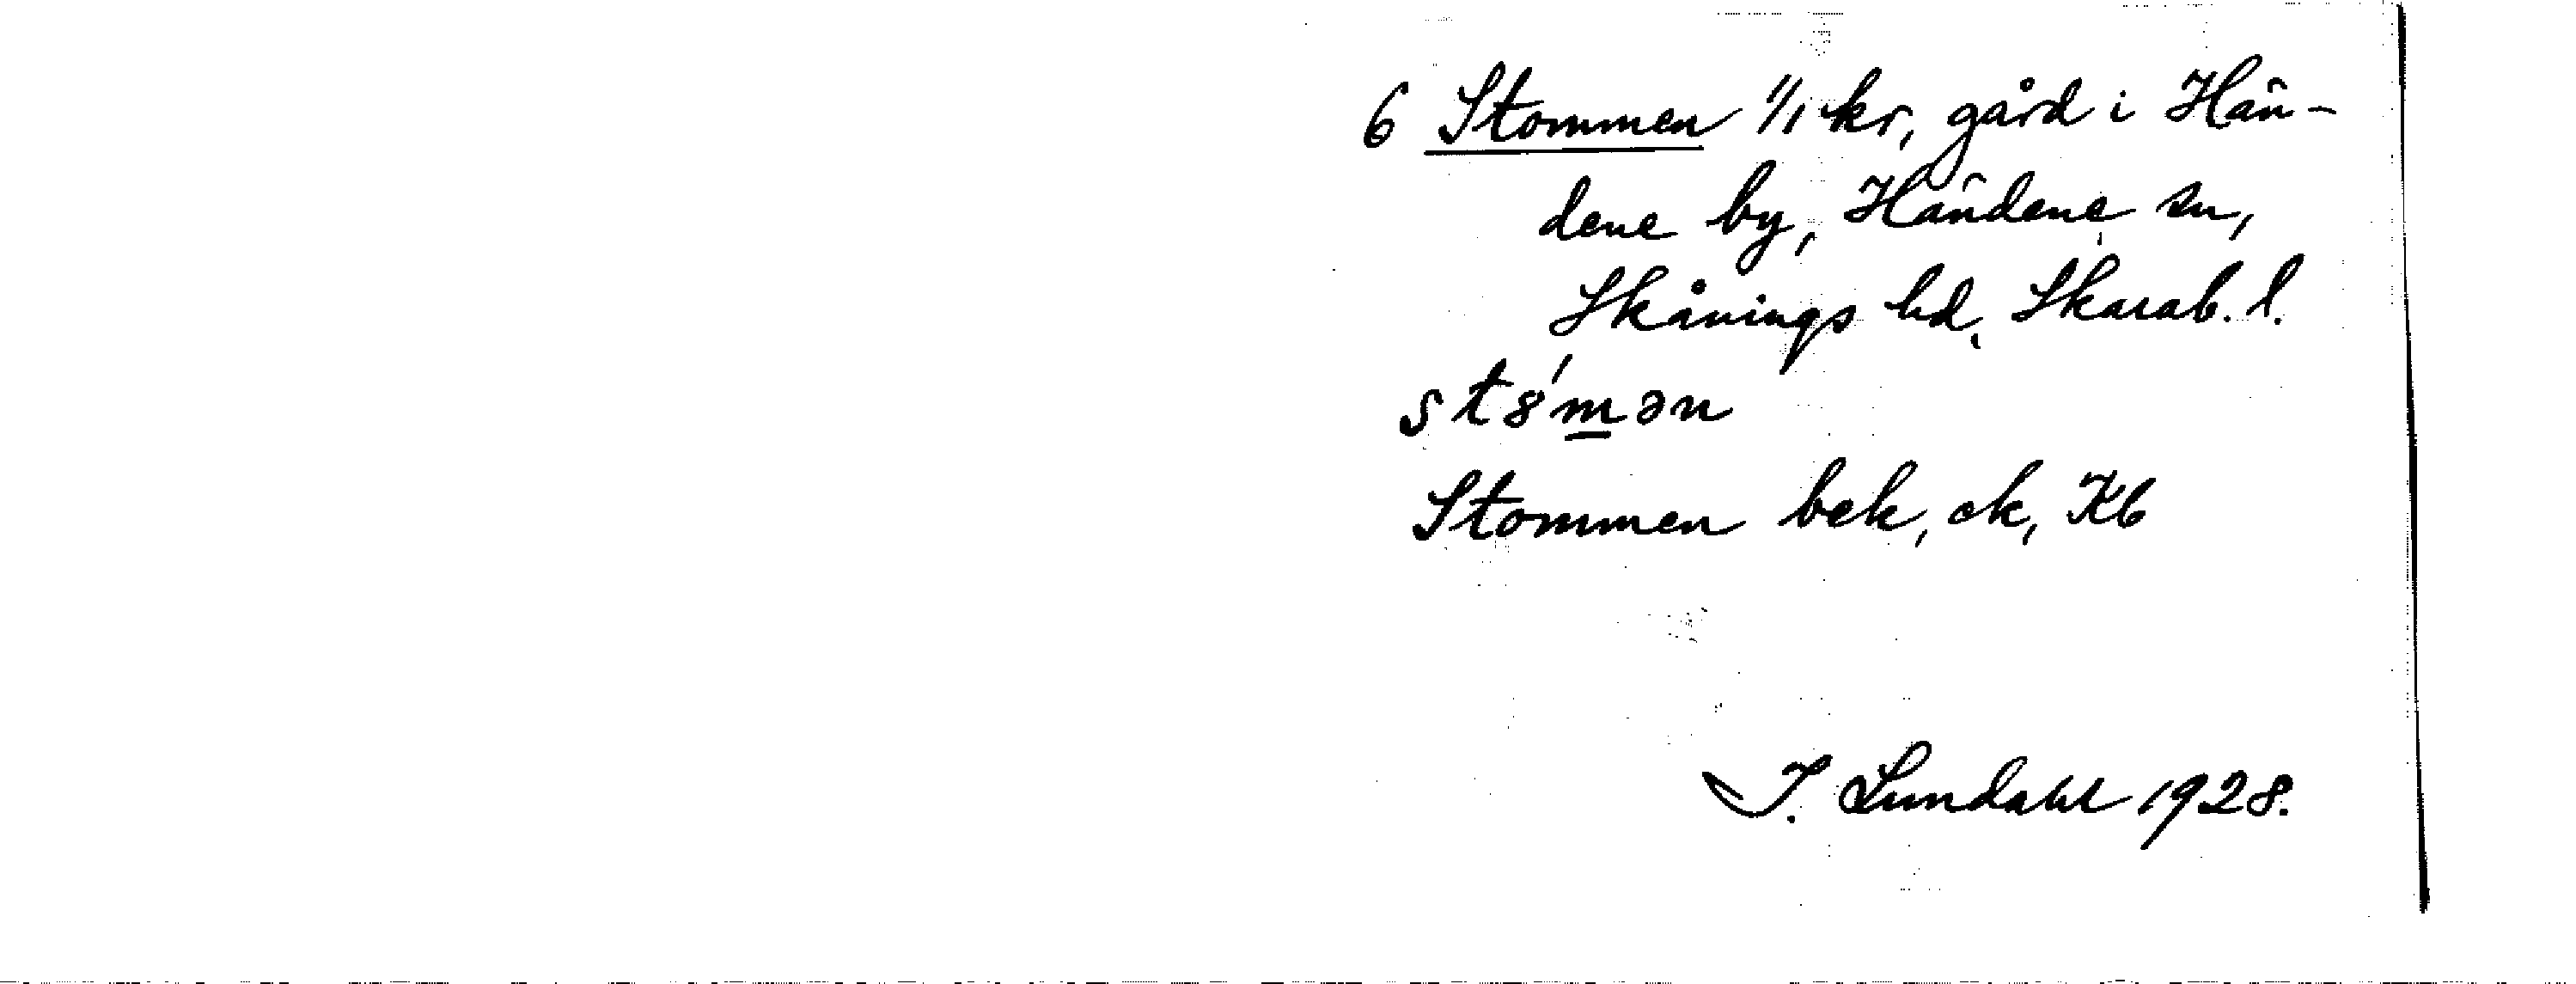 6 Stommen 1/1 kr, gård i Hän-
dene by, Händene sn,
Skånings hd, Skarab. l.
st8́mən
Stommen bek, ok, Kb
I. Lundahl 1928.